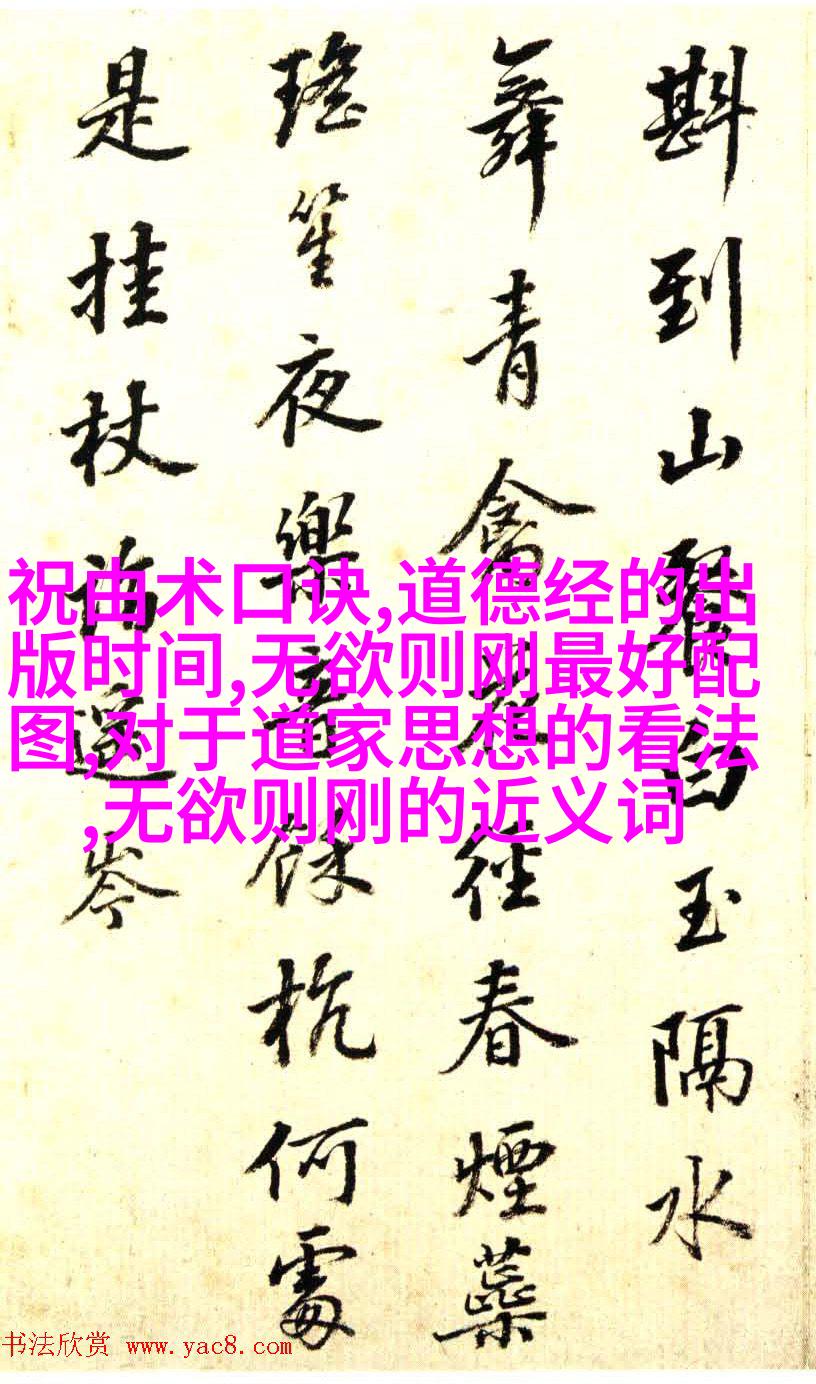 斟到山玉隔水
舞青禽徑春煙蘂
瑤笙夜樂音餘杭何處
是挂杖岑
祝由术口诀,道德经的出
版时间,无欲则刚最好配
图,对于道家思想的看法
,无欲则刚的近义词
书法欣赏 www.yac8.com